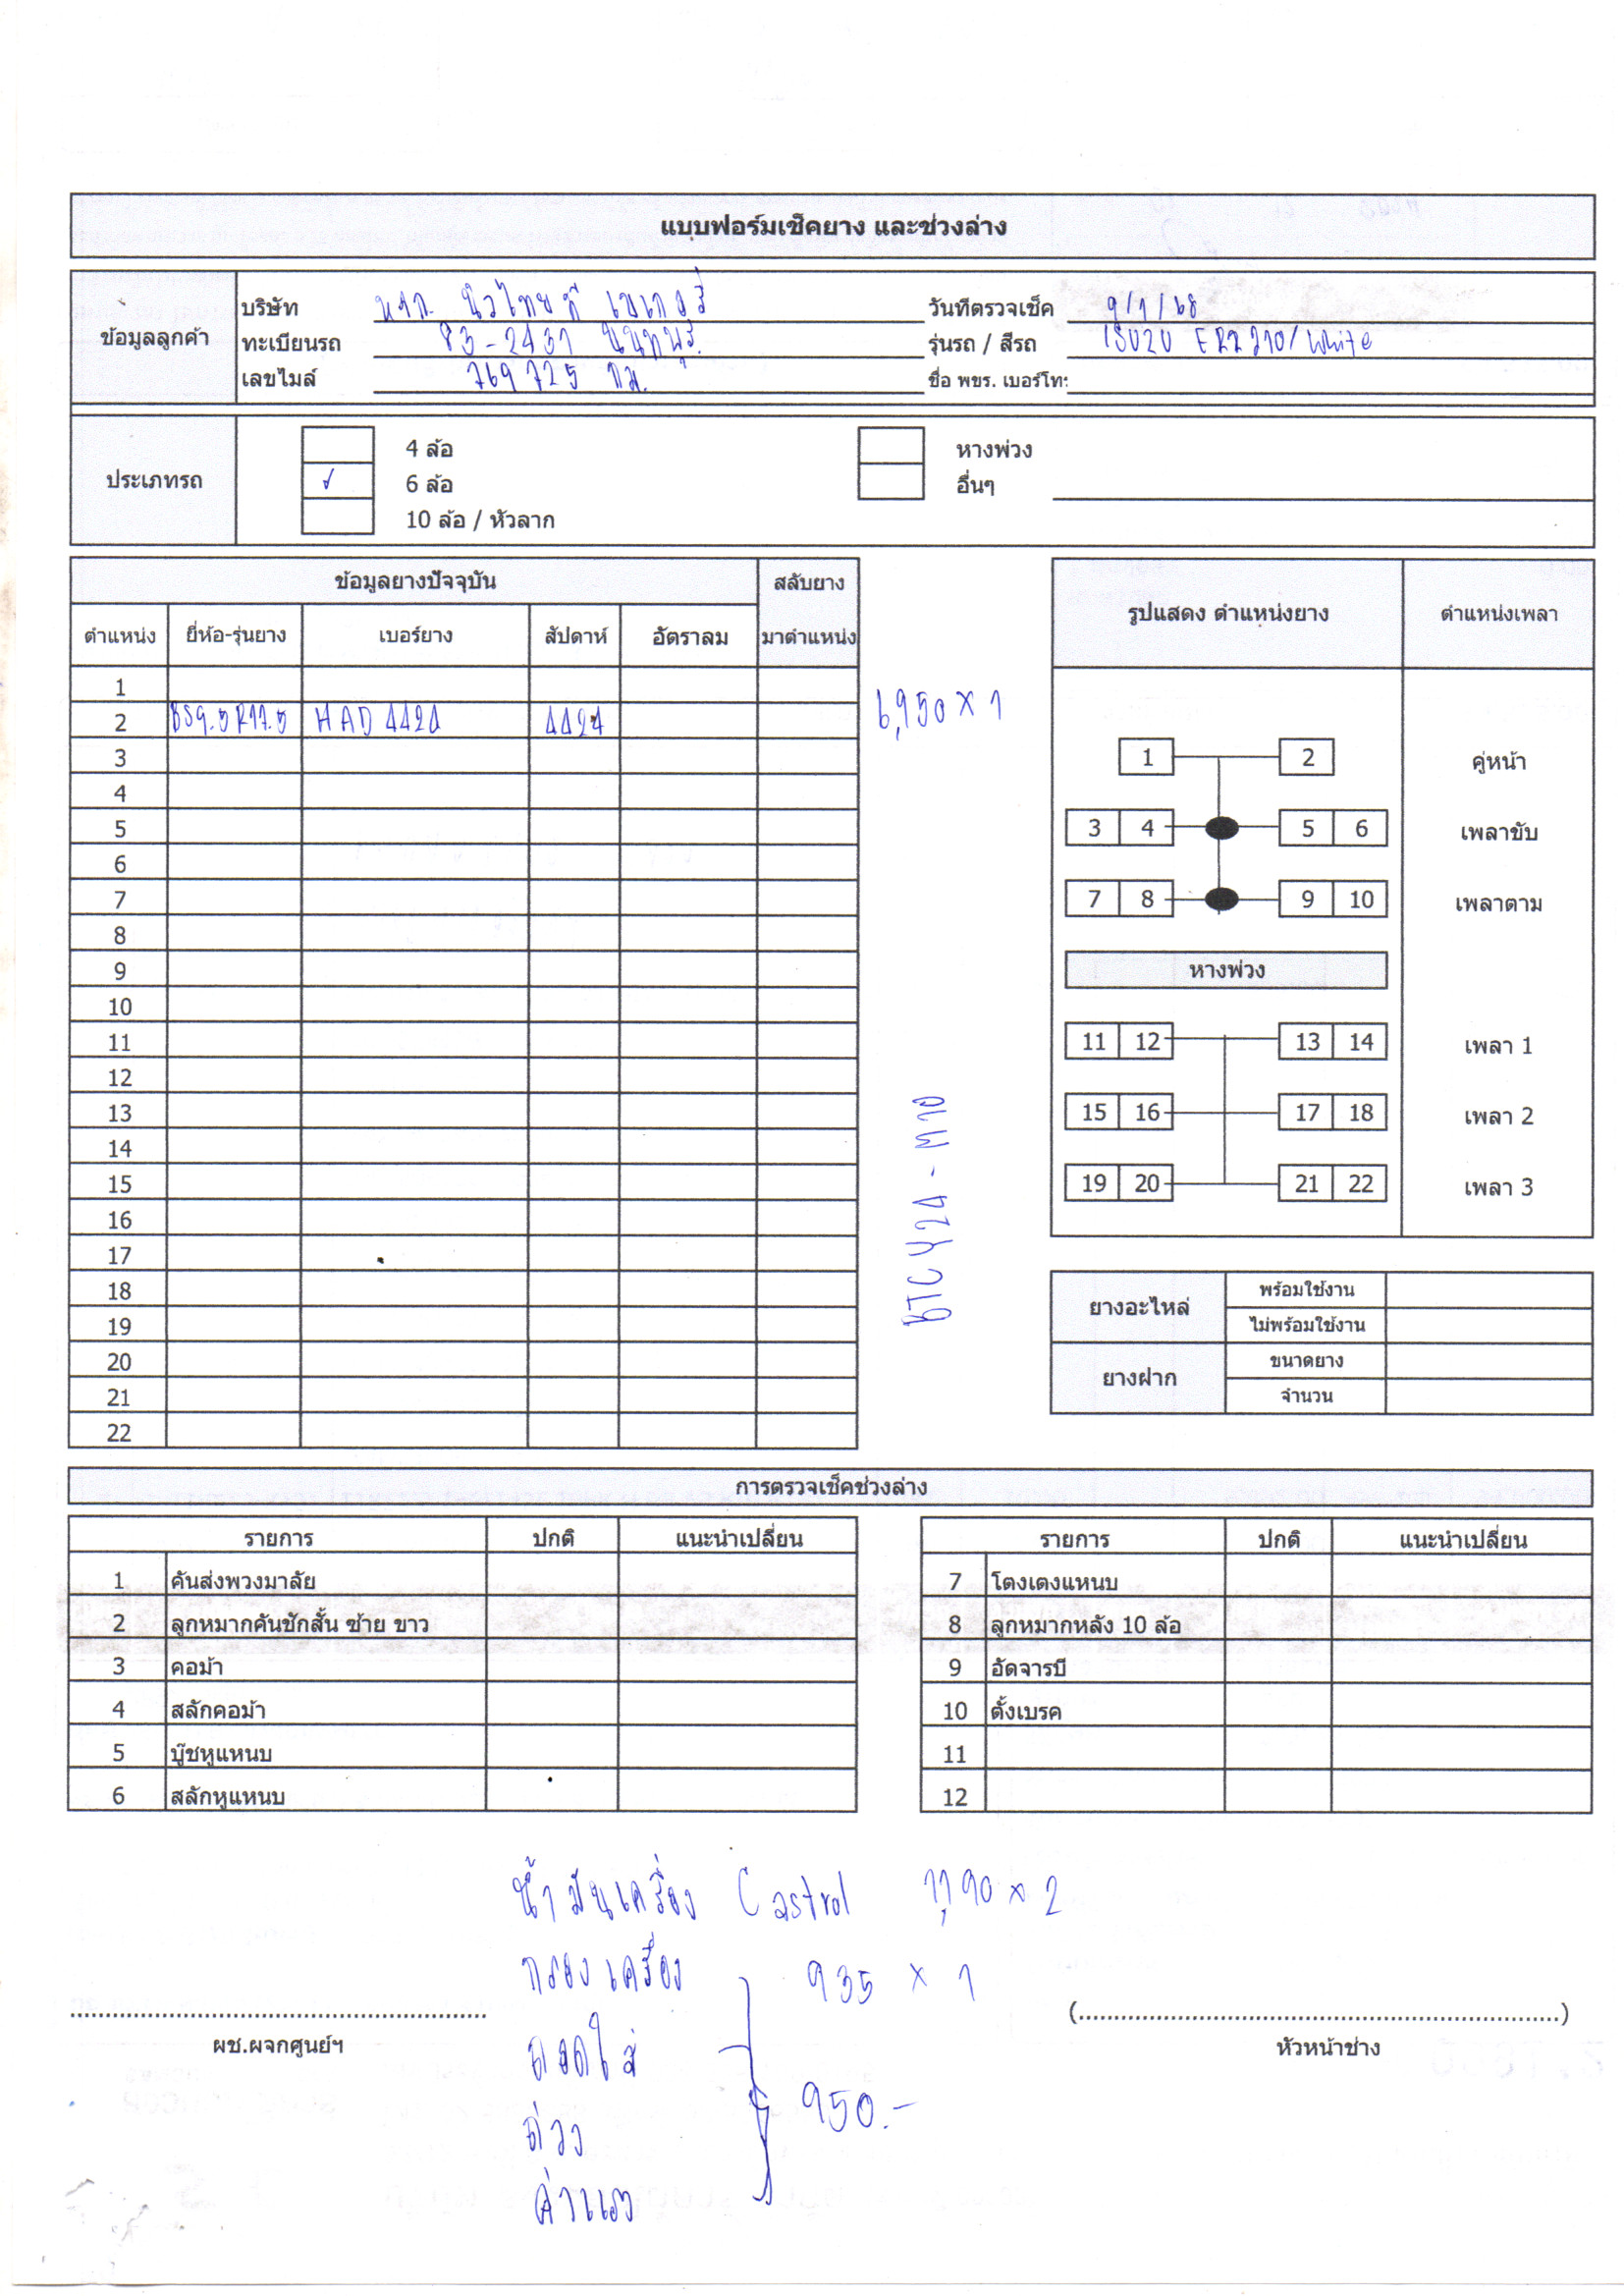 แบบฟอร์มเช็คยาง และช่วงล่าง
ข้อมูลลูกค้า
บริษัท หจก. นิวไทยดี เบเกอรี่
วันที่ตรวจเช็ค 9/1/68
ทะเบียนรถ 83-2431 นนทบุรี
รุ่นรถ / สีรถ ISUZU /White
เลขไมล์ 769725 กม.
ชื่อ พขร. เบอร์โทร
ประเภทรถ
4 ล้อ
หางพ่วง
✓ 6 ล้อ
อื่นๆ
10 ล้อ / หัวลาก
ข้อมูลยางปัจจุบัน สลับยาง
ตำแหน่ง ยี่ห้อ-รุ่นยาง เบอร์ยาง สัปดาห์ อัตราลม มาตำแหน่ง
1
2 BS9.5R17.5 HAD 4424 4424
6,950 x 1
3
4
5
6
7
8
9
10
11
12
13
14
15
16
17
18
19
20
21
22
รูปแสดง ตำแหน่งยาง ตำแหน่งเพลา
1 2 คู่หน้า
3 4 5 6 เพลาขับ
7 8 9 10 เพลาตาม
หางพ่วง
11 12 13 14 เพลา 1
15 16 17 18 เพลา 2
19 20 21 22 เพลา 3
ยางอะไหล่ พร้อมใช้งาน
ไม่พร้อมใช้งาน
ยางฝาก ขนาดยาง
จำนวน
การตรวจเช็คช่วงล่าง
รายการ ปกติ แนะนำเปลี่ยน
1 คันส่งพวงมาลัย
2 ลูกหมากคันชักสั้น ซ้าย ขาว
3 คอม้า
4 สลักคอม้า
5 บู๊ชหูแหนบ
6 สลักหูแหนบ
รายการ ปกติ แนะนำเปลี่ยน
7 โตงเตงแหนบ
8 ลูกหมากหลัง 10 ล้อ
9 อัดจารบี
10 ตั้งเบรค
11
12
น้ำมันเครื่อง Castrol 1,190 x 2
กรองเครื่อง 935 x 1
ถอดใส่
ถ่วง
950.-
ค่าแรง
ผช.ผจกศูนย์ฯ
(................................................................)
หัวหน้าช่าง